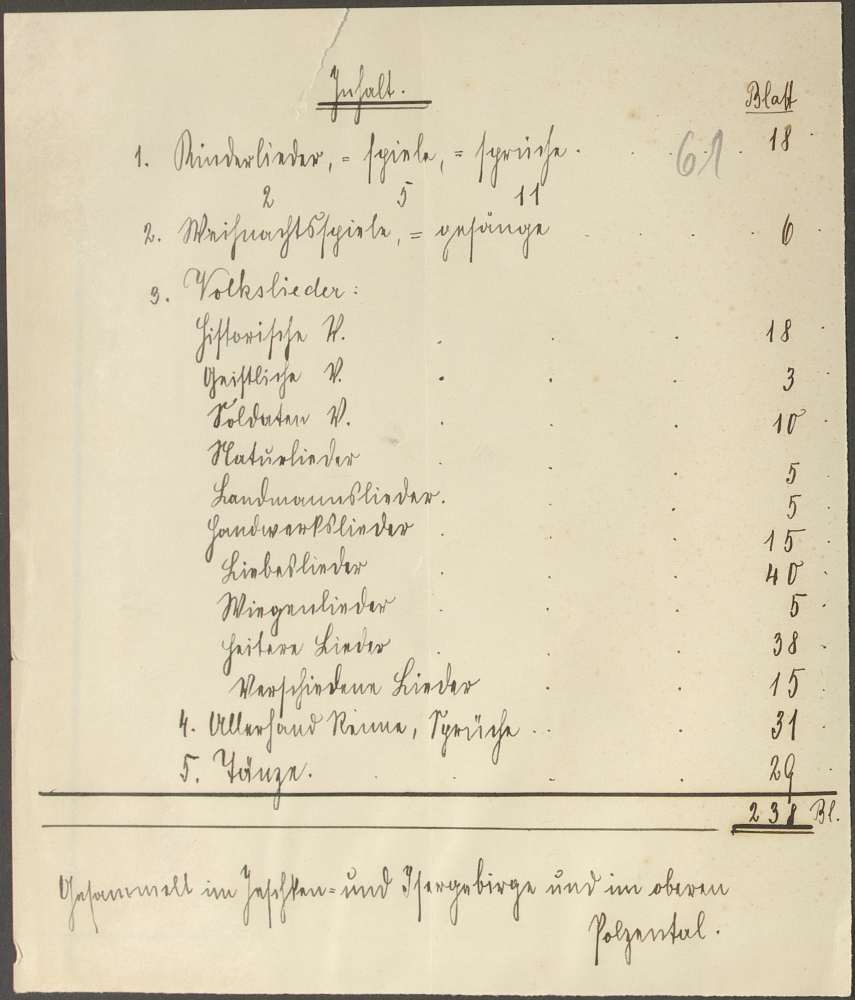 Inhalt.
Blatt
1. Kinderlieder, = spiele, = sprüche. 61 18
2 5 11
2. Weihnachtsspiele, = gesänge 6
3. Volkslieder:
Historische V. 18
Geistliche V. 3
Soldaten V. 10
Naturlieder 5
Landmannslieder. 5
Handwerkslieder 15
Liebeslieder 40
Wiegenlieder 5
Heitere Lieder 38
Verschiedene Lieder 15
4. Allerhand Reime, Sprüche 31
5. Tänze. 29
238 Bl.
Gesammelt im Jeschken= und Isergebirge und im oberen
Polzental.